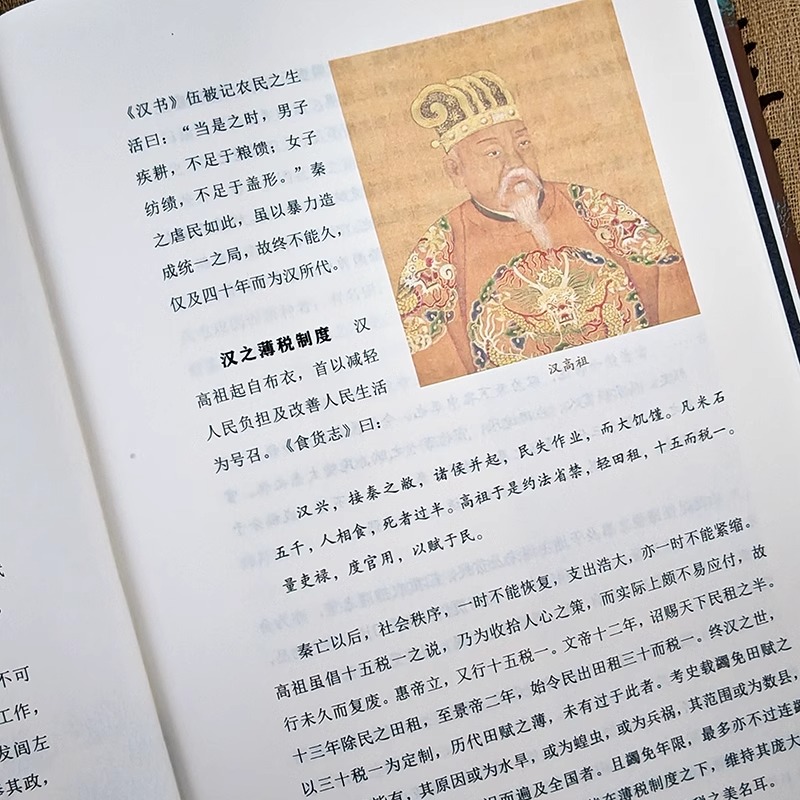 《汉书》伍被记农民之生
活曰：“当是之时，男子
疾耕，不足于粮馈；女子
纺绩，不足于盖形。”秦
之虐民如此，虽以暴力造
成统一之局，故终不能久，
仅及四十年而为汉所代。
汉高祖
汉之薄税制度 汉
高祖起自布衣，首以减轻
人民负担及改善人民生活
为号召。《食货志》曰：
汉兴，接秦之敝，诸侯并起，民失作业，而大饥馑。凡米石
五千，人相食，死者过半。高祖于是约法省禁，轻田租，十五而税一。
量吏禄，度官用，以赋于民。
秦亡以后，社会秩序，一时不能恢复，支出浩大，亦一时不能紧缩。
高祖虽倡十五税一之说，乃为收拾人心之策，而实际上颇不易应付，故
行未久而复废。惠帝立，又行十五税一。文帝十二年，诏赐天下民租之半。
十三年除民之田租，至景帝二年，始令民出田租三十而税一。终汉之世，
以三十税一为定制，历代田赋之薄，未有过于此者。考史载蠲免田赋之
皆有，其原因或为水旱，或为蝗虫，或为兵祸，其范围或为数县，
而遍及全国者。且蠲免年限，最多亦不过连
在薄税制度之下，维持其庞大
之美名耳。
不可
工作，
发闾左
参其政，